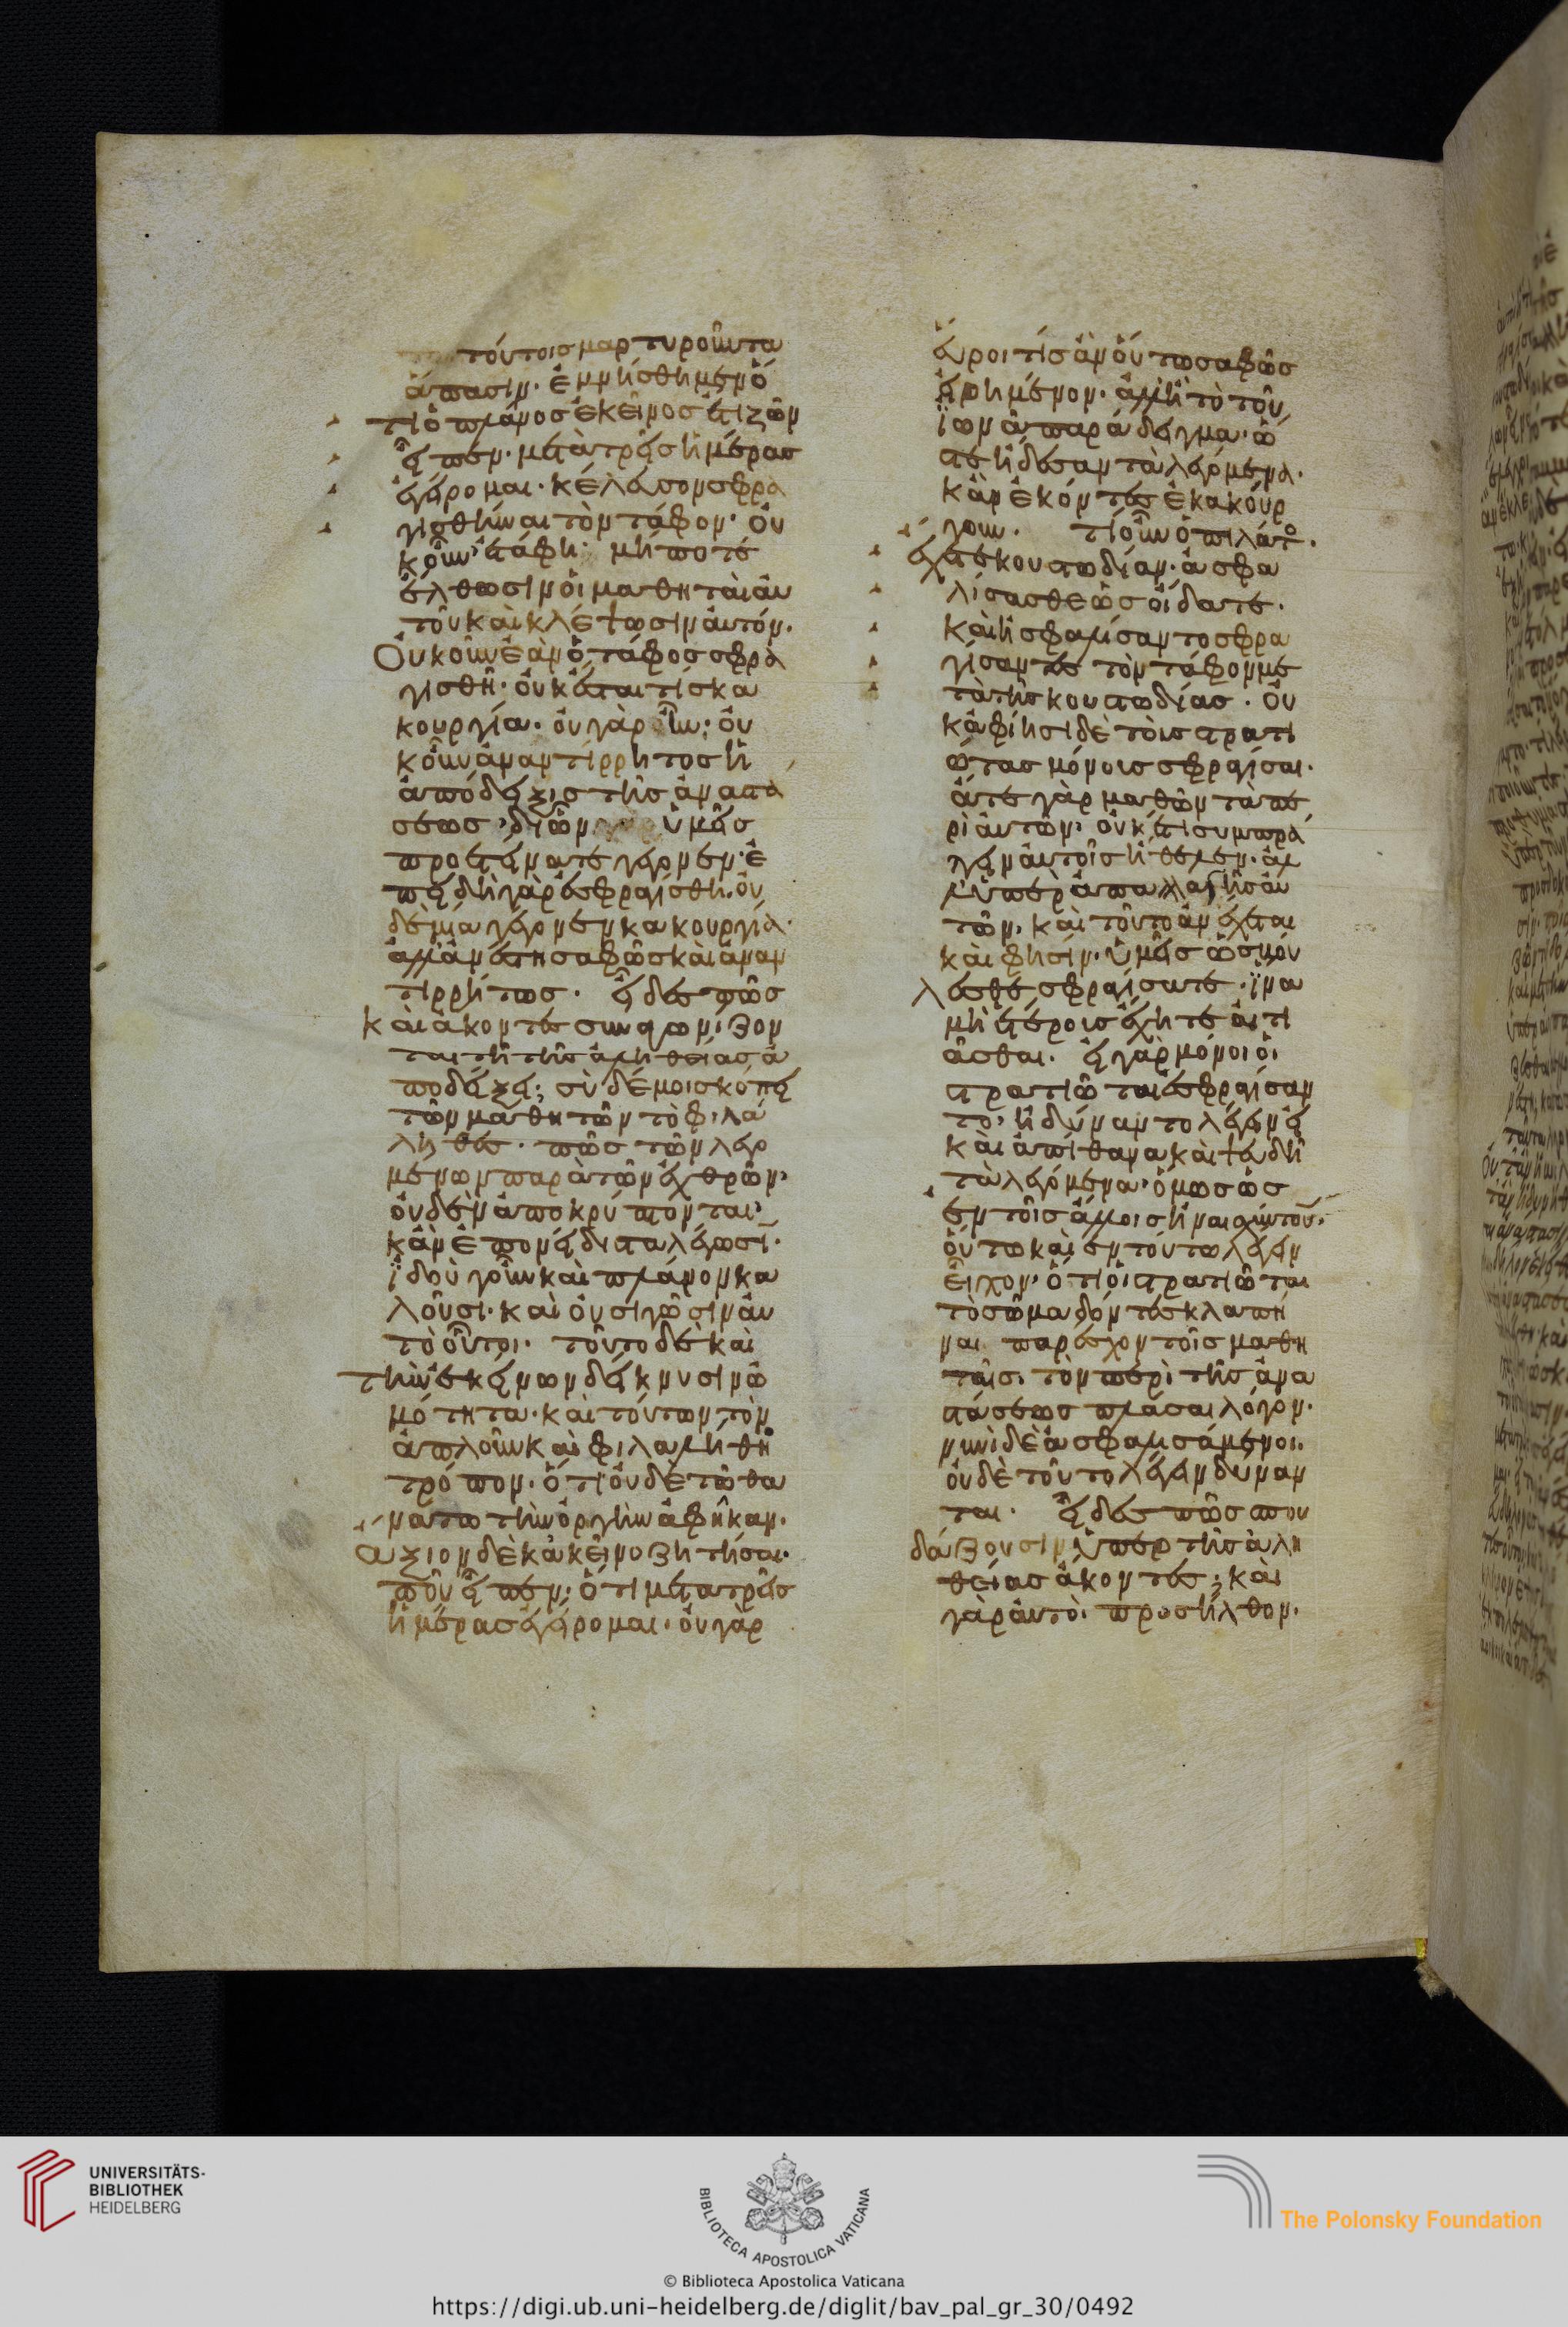 τούτοις μαρτυροῦντα
ἅπασιν· ἐμνήσθημεν ὅ
τι ὁ πλάνος ἐκεῖνος ἔτι ζῶν
εἶπεν· μετὰ τρεῖς ἡμέρας
ἐγείρομαι· κέλευσον σφρα
γισθῆναι τὸν τάφον· οὐ
κοῦν ἐτάφη· μήποτε
ἔλθωσιν οἱ μαθηταὶ αὐ
τοῦ καὶ κλέψωσιν αὐτόν·
Οὐκοῦν ἐὰν ὁ τάφος σφρα
γισθῆ· οὐκ ἔσται τίς κα
κουργία· οὐ γὰρ οὖν· οὐ
κοῦν ἀναντίρρητος ἡ
ἀπόδειξις τῆς ἀναστά
σεως· δι ὧν ὑμεῖς
προετείνατε γέγονεν· ἐ
πειδὴ γὰρ ἐσφραγίσθη· οὐ
δεμία γέγονεν κακουργία·
ἀλλ' ἀνέστη σαφῶς καὶ ἀναν
τιρρήτως· εἶδες πῶς
καὶ ἄκοντες συναγωνίζον
ται τῆ τῆς ἀληθείας ἀ
ποδείξει; σὺ δέ μοι σκόπει
τῶν μαθητῶν τὸ φιλά
ληθες· πῶς τῶν λεγο
μένων παρὰ τῶν ἐχθρῶν·
οὐδὲν ἀποκρύπτονται·
κἂν ἐπονείδιστα λέγωσι·
ἰδοὺ γοῦν καὶ πλάνον κα
λοῦσι· καὶ οὐ σιγῶσιν αὐ
τὸ οὗτοι· τοῦτο δὲ καὶ
τὴν ἐκείνων δείκνυσιν ὠ
μότητα· καὶ τούτων τὸν
ἁπλοῦν καὶ φιλαλήθη
τρόπον· ὅτι οὐδὲ τῶ θα
νάτω τὴν ὀργὴν ἀφῆκαν·
αξιον δὲ κἀκεῖνο ζητῆσαι·
ποῦ εἶπεν· ὅτι μετα τρεῖς
ἡμέρας ἐγείρομαι· οὐ γὰρ
εὕροι τίς ἂν οὕτω σαφῶς
εἰρημένον· ἀλλ' ἢ τὸ τοῦ
ἰωνᾶ παράδειγμα· ὥ
στε ἤδεσαν τὰ λεγόμενα·
κἂν ἑκόντες ἐκακούρ
γουν· τί οὖν ὁ πιλάτος·
ἔχετε κουστωδίαν· ἀσφα
λίσασθε ὡς οἴδατε·
καὶ ἠσφαλίσαντο σφρα
γίσαντες τὸν τάφον με
τὰ τῆς κουστωδίας· οὐ
κ ἀφίησι δὲ τοὺς στρατι
ώτας μόνους σφραγίσαι·
ἅτε γὰρ μαθὼν τὰ πε
ρὶ αὐτῶν· οὐκ ἔτι συμπρά
γειν αὐτοῖς ἤθελεν· ἀλ
λ ὑπὲρ ἀπαλλαγῆς αὐ
τῶν· καὶ τοῦτο ἀνέχεται
καὶ φησὶν· ὑμεῖς ὡς βού
λεσθε σφραγίσατε· ἵνα
μὴ ἑτέρους ἔχητε αἰτι
ᾶσθαι· εἰ γὰρ μόνοι οἱ
στρατιῶται ἐσφράγισαν
το· ἠδύναντο λέγειν εἰ
καὶ ἀπίθανα καὶ ψευδῆ
τὰ λεγόμενα· ὅμως ὡς
ἐν τοῖς ἄλλοις ἠναισχύντουν·
οὕτω καὶ ἐν τούτω λέγειν
εἶχον· ὅτι οἱ στρατιῶται
τὸ σῶμα δόντες κλαπῆ
ναι παρέσχον τοῖς μαθη
ταῖς· τὸν περὶ τῆς ἀνα
στάσεως πλάσαι λόγον·
νυνὶ δὲ ἀσφαλισάμενοι·
οὐδὲ τοῦτο λέγειν δύναν
ται· εἶδες πῶς σπου
δάζουσιν ὑπὲρ τῆς ἀλη
θείας ἄκοντες; καὶ
γὰρ αὐτοὶ προσῆλθον·
UNIVERSITÄTS-
BIBLIOTHEK
HEIDELBERG
BIBLIOTECA APOSTOLICA VATICANA
© Biblioteca Apostolica Vaticana
The Polonsky Foundation
https://digi.ub.uni-heidelberg.de/diglit/bav_pal_gr_30/0492